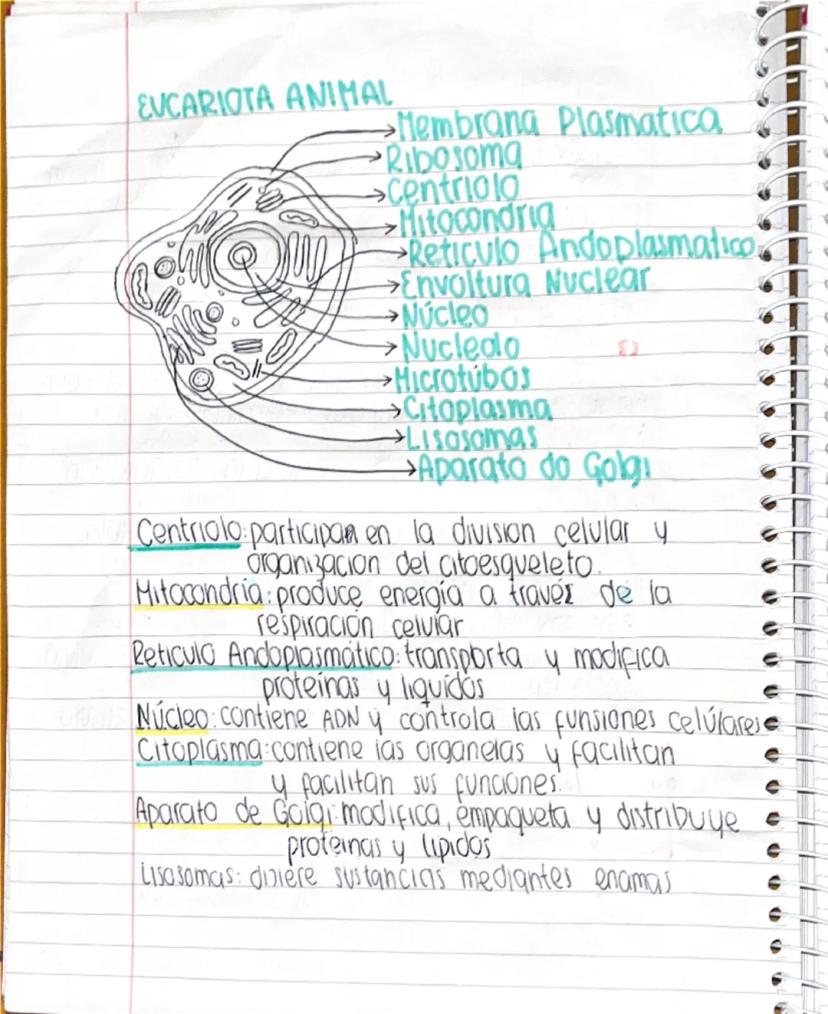 EUCARIOTA ANIMAL
Membrana Plasmatica
Ribosoma
Centriolo
Mitocondria
Reticulo Andoplasmatico
Envoltura Nuclear
Núcleo
Nucleolo
Microtúbos
Citoplasma
Lisosomas
Aparato do Golgi
Centriolo: participan en la division celular y
organizacion del citoesqueleto.
Mitocondria: produce energía a través de la
respiración celular
Reticulo Andoplasmático: transporta y modifica
proteínas y liquidos
Núcleo: contiene ADN y controla las funsiones celúlares
Citoplasma: contiene las organelas y facilitan
y facilitan sus funciones.
Aparato de Golgi: modifica, empaqueta y distribuye
proteinas y lipidos
Lisosomas: diviere sustancias mediantes enamas